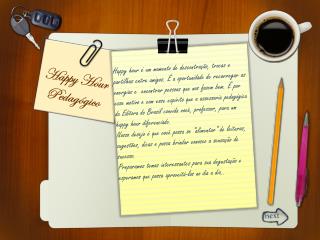 Happy Hour
Pedagógico
Happy hour é um momento de descontração, trocas e
partilhas entre amigos. É a oportunidade de recarregar as
energias e encontrar pessoas que nos fazem bem. É por
esse motivo e com esse espírito que a assessoria pedagógica
da Editora do Brasil convida você, professor, para um
happy hour diferenciado.
Nosso desejo é que você possa se "alimentar" de leituras,
sugestões, dicas e possa brindar conosco a sensação de
sucesso.
Preparamos temas interessantes para sua degustação e
esperamos que possa aproveitá-los no dia a dia.
next